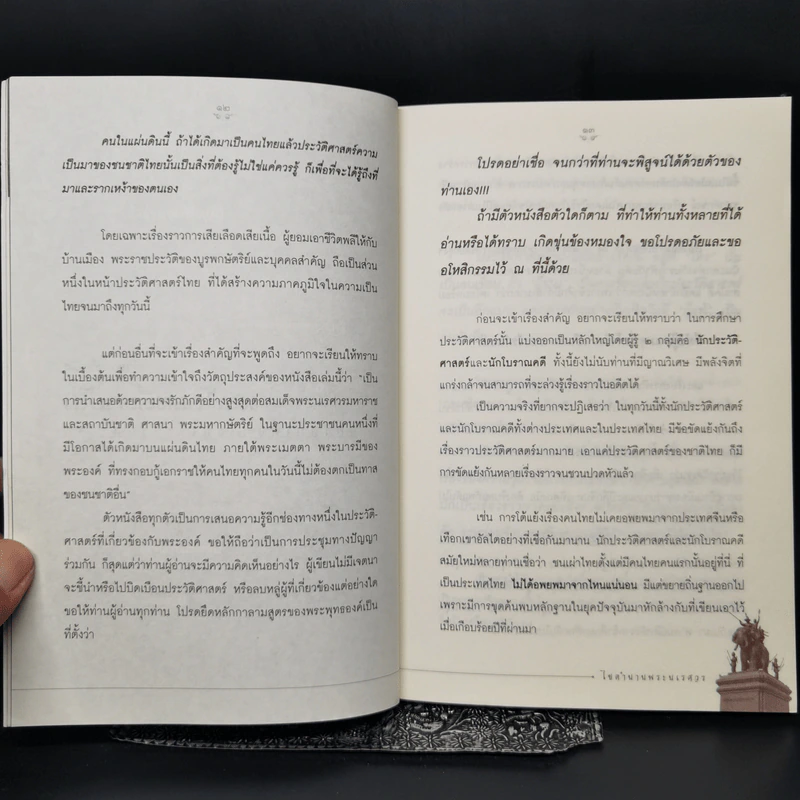 ๑๒
คนในแผ่นดินนี้ ถ้าได้เกิดมาเป็นคนไทยแล้วประวัติศาสตร์ความ
เป็นมาของชนชาติไทยนั้นเป็นสิ่งที่ต้องรู้ไม่ใช่แค่ควรรู้ ก็เพื่อที่จะได้รู้ถึงที่
มาและรากเหง้าของตนเอง
โดยเฉพาะเรื่องราวการเสียเลือดเสียเนื้อ ผู้ยอมเอาชีวิตพลีให้กับ
บ้านเมือง พระราชประวัติของบูรพกษัตริย์และบุคคลสำคัญ ถือเป็นส่วน
หนึ่งในหน้าประวัติศาสตร์ไทย ที่ได้สร้างความภาคภูมิใจในความเป็น
ไทยจนมาถึงทุกวันนี้
แต่ก่อนอื่นที่จะเข้าเรื่องสำคัญที่จะพูดถึง อยากจะเรียนให้ทราบ
ในเบื้องต้นเพื่อทำความเข้าใจถึงวัตถุประสงค์ของหนังสือเล่มนี้ว่า "เป็น
การนำเสนอด้วยความจงรักภักดีอย่างสูงสุดต่อสมเด็จพระนเรศวรมหาราช
และสถาบันชาติ ศาสนา พระมหากษัตริย์ ในฐานะประชาชนคนหนึ่งที่
มีโอกาสได้เกิดมาบนแผ่นดินไทย ภายใต้พระเมตตา พระบารมีของ
พระองค์ ที่ทรงกอบกู้เอกราชให้คนไทยทุกคนในวันนี้ไม่ต้องตกเป็นทาส
ของชนชาติอื่น"
ตัวหนังสือทุกตัวเป็นการเสนอความรู้อีกช่องทางหนึ่งในประวัติ-
ศาสตร์ที่เกี่ยวข้องกับพระองค์ ขอให้ถือว่าเป็นการประชุมทางปัญญา
ร่วมกัน ก็สุดแต่ว่าผู้อ่านจะมีความคิดเห็นอย่างไร ผู้เขียนไม่มีเจตนา
จะชี้นำหรือไปบิดเบือนประวัติศาสตร์ หรือลบหลู่ผู้ที่เกี่ยวข้องแต่อย่างใด
ขอให้ท่านผู้อ่านทุกท่าน โปรดยึดหลักกาลามสูตรของพระพุทธองค์เป็น
ที่ตั้งว่า
๑๓
โปรดอย่าเชื่อ จนกว่าที่ท่านจะพิสูจน์ได้ด้วยตัวของ
ท่านเอง!!!
ถ้ามีตัวหนังสือตัวใดก็ตาม ที่ทำให้ท่านทั้งหลายที่ได้
อ่านหรือได้ทราบ เกิดขุ่นข้องหมองใจ ขอโปรดอภัยและขอ
อโหสิกรรมไว้ ณ ที่นี้ด้วย
ก่อนจะเข้าเรื่องสำคัญ อยากจะเรียนให้ทราบว่า ในการศึกษา
ประวัติศาสตร์นั้น แบ่งออกเป็นหลักใหญ่โดยผู้รู้ ๒ กลุ่มคือ นักประวัติ-
ศาสตร์และนักโบราณคดี ทั้งนี้ยังไม่นับท่านที่มีญาณวิเศษ มีพลังจิตที่
แกร่งกล้าจนสามารถที่จะล่วงรู้เรื่องราวในอดีตได้
เป็นความจริงที่ยากจะปฏิเสธว่า ในทุกวันนี้ทั้งนักประวัติศาสตร์
และนักโบราณคดีทั้งต่างประเทศและในประเทศไทย มีข้อขัดแย้งกันถึง
เรื่องราวประวัติศาสตร์มากมาย เอาแค่ประวัติศาสตร์ของชาติไทย ก็มี
การขัดแย้งกันหลายเรื่องราวจนชวนปวดหัวแล้ว
เช่น การโต้แย้งเรื่องคนไทยไม่เคยอพยพมาจากประเทศจีนหรือ
เทือกเขาอัลไตอย่างที่เชื่อกันมานาน นักประวัติศาสตร์และนักโบราณคดี
สมัยใหม่หลายท่านเชื่อว่า ชนเผ่าไทยตั้งแต่มีคนไทยคนแรกนั้นอยู่ที่นี่ ที่
เป็นประเทศไทย ไม่ได้อพยพมาจากไหนแน่นอน มีแต่ขยายถิ่นฐานออกไป
เพราะมีการขุดค้นพบหลักฐานในยุคปัจจุบันมาหักล้างกับที่เขียนเอาไว้
เมื่อเกือบร้อยปีที่ผ่านมา
ไขตำนานพระนเรศวร